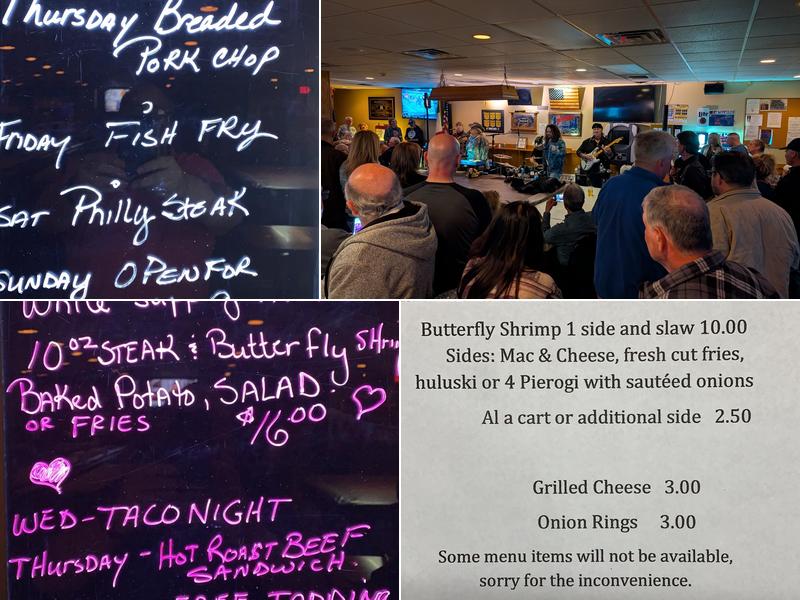 Thursday Breaded
PORK CHOP
FRIDAY FISH FRY
SAT Philly STEAK
SUNDAY OPEN FOR
White supply
10 OZ STEAK & Butterfly SHri
BAKed POTATO, SALAD
OR FRIES $16.00
WED-TACO NIGHT
THURSDAY - HOT ROAST BEEF
SANDWICH.
Butterfly Shrimp 1 side and slaw 10.00
Sides: Mac & Cheese, fresh cut fries,
huluski or 4 Pierogi with sautéed onions
Al a cart or additional side 2.50
Grilled Cheese 3.00
Onion Rings 3.00
Some menu items will not be available,
sorry for the inconvenience.